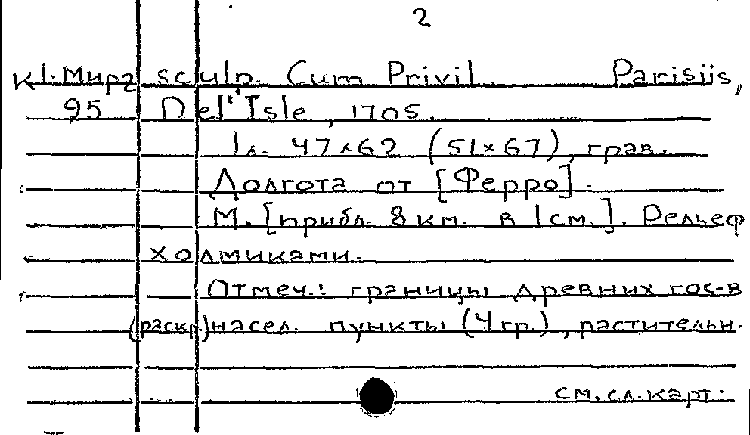 2
К1.Мирг sculp. Cum Privil. Parisiis,
95 Del'Isle, 1705.
1л. 47×62 (51×67), грав.
Долгота от [Ферро].
М. [прибл. 8 км. в 1 см.]. Рельеф
холмиками.
Отмеч.: границы древних гос-в
(раскр) насел. пункты (4 гр.), растительн.
см. сл. карт: